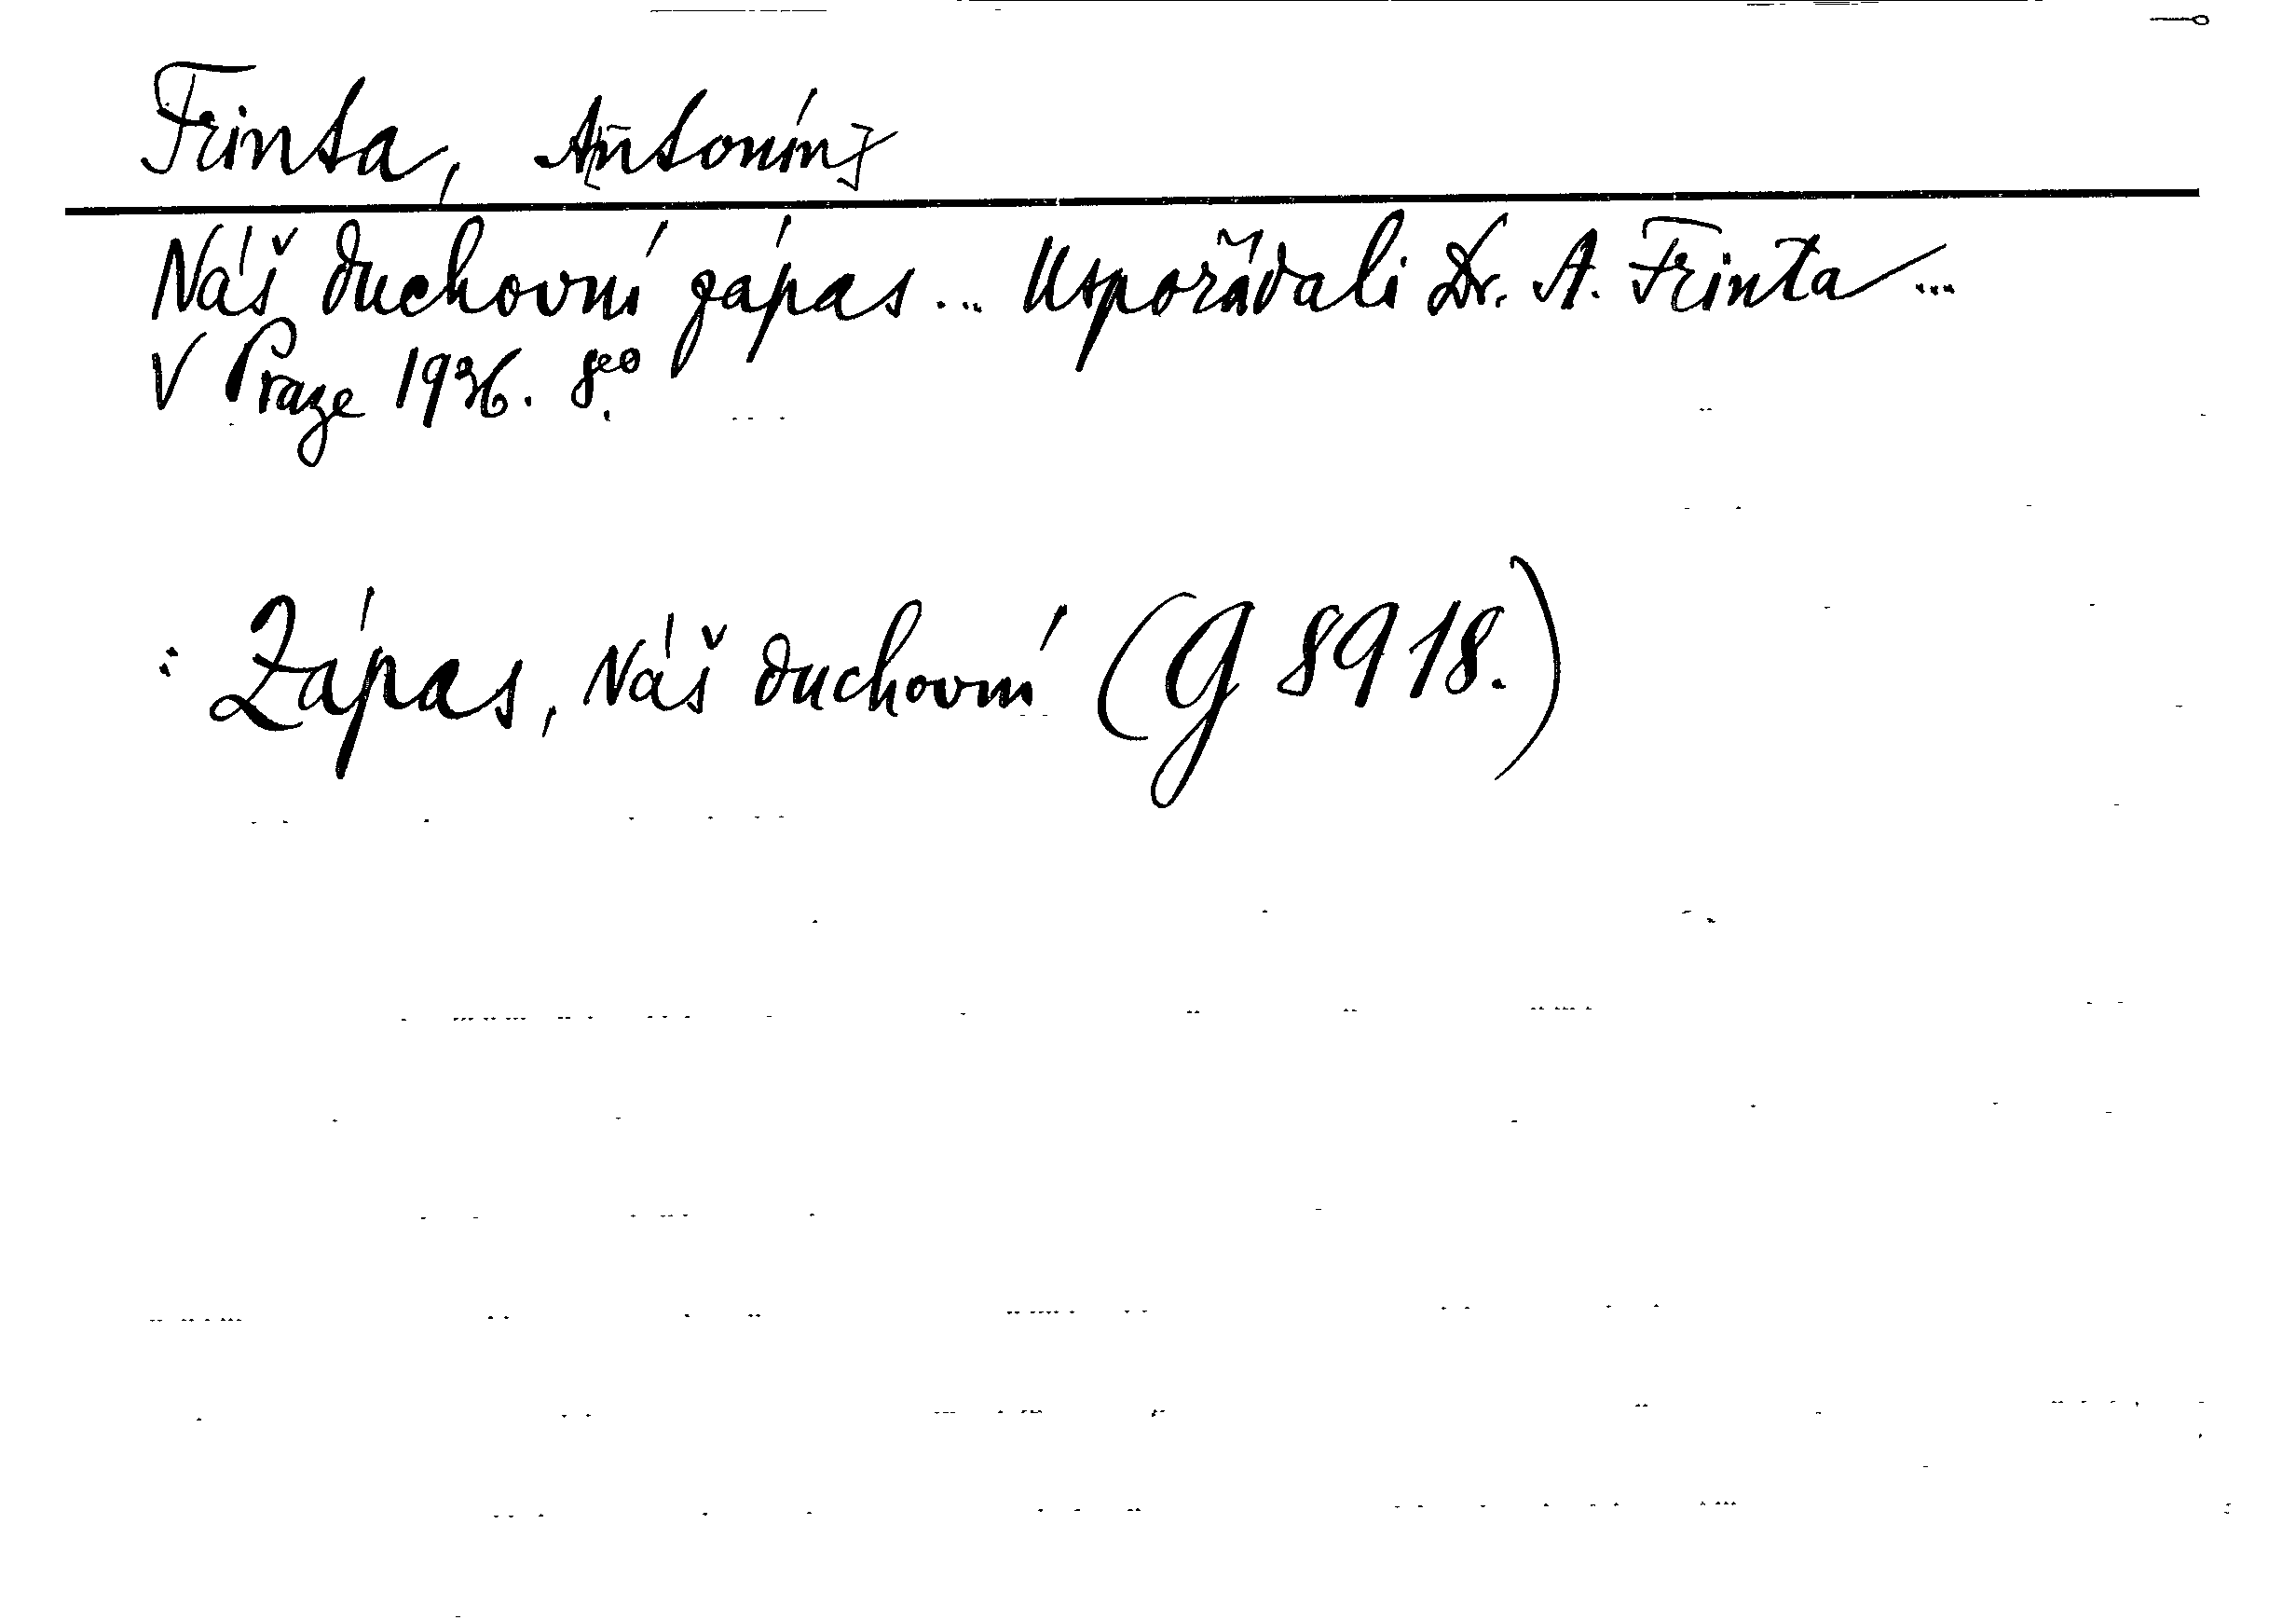 Frinta, A[ntonín]
Náš duchovní zápas... Uspořádali Dr. A. Frinta...
V Praze 1936. 8°.
: Zápas, Náš duchovní (G 8918.)